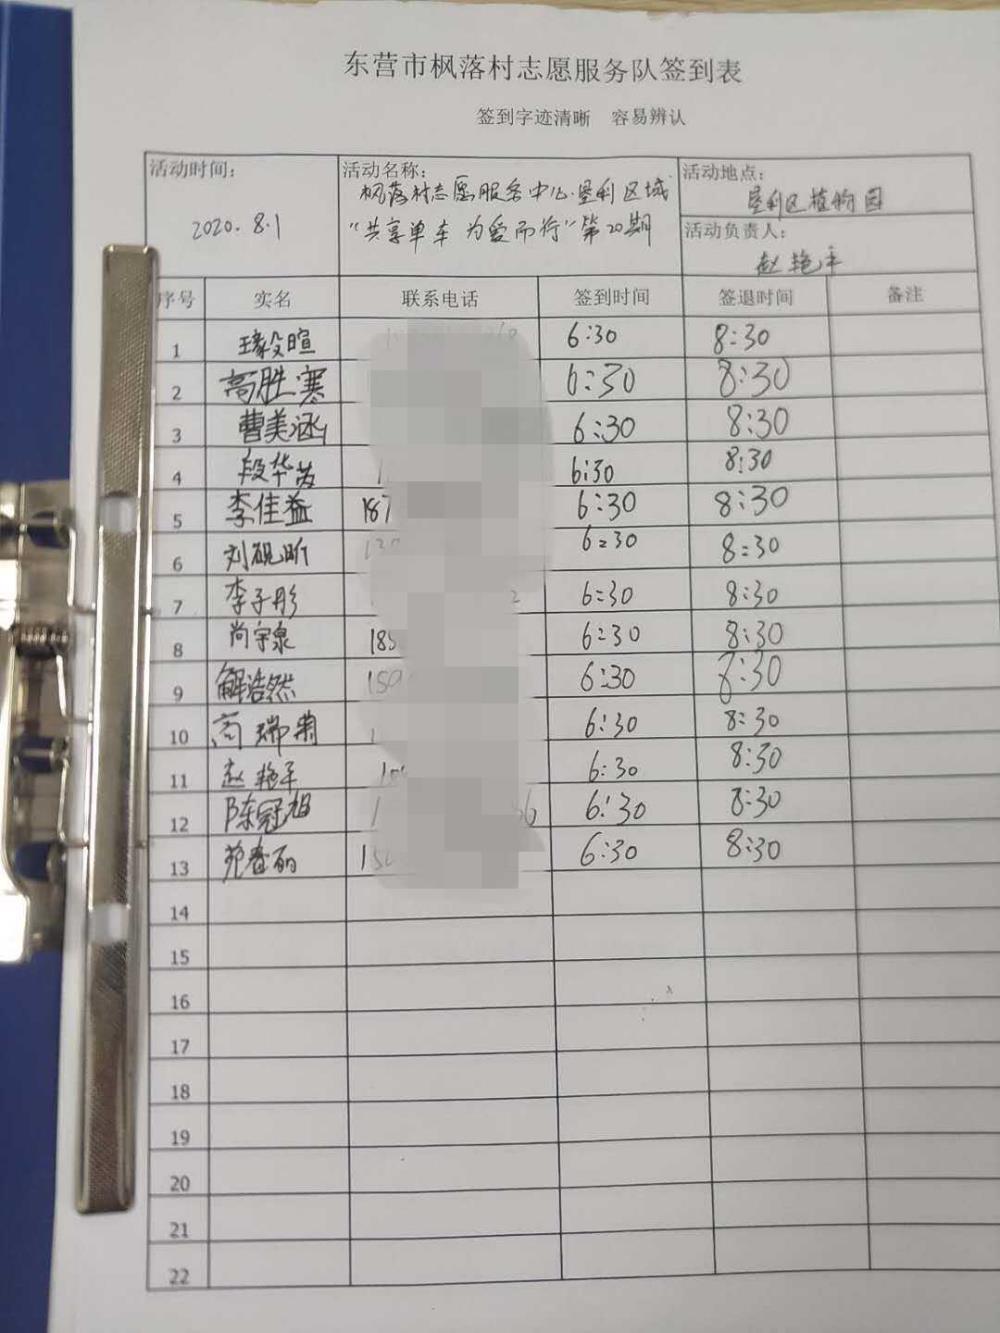 东营市枫落村志愿服务队签到表
签到字迹清晰 容易辨认
活动时间：
2020.8.1
活动名称：
枫落村志愿服务中心·垦利区域
“共享单车 为爱而行”第20期
活动地点：
垦利区植物园
活动负责人：
赵艳平
序号 实名 联系电话 签到时间 签退时间 备注
1 6:30 8:30
2 高胜寒 6:30 8:30
3 曹美涵 6:30 8:30
4 段华芮 6:30 8:30
5 李佳益 187 6:30 8:30
6 刘砚昕 6:30 8:30
7 李子彤 6:30 8:30
8 尚宇泉 185 6:30 8:30
9 解浩然 150 6:30 8:30
10 高瑞菊 6:30 8:30
11 赵艳平 6:30 8:30
12 陈冠旭 6:30 8:30
13 苑春丽 6:30 8:30
14
15
16
17
18
19
20
21
22